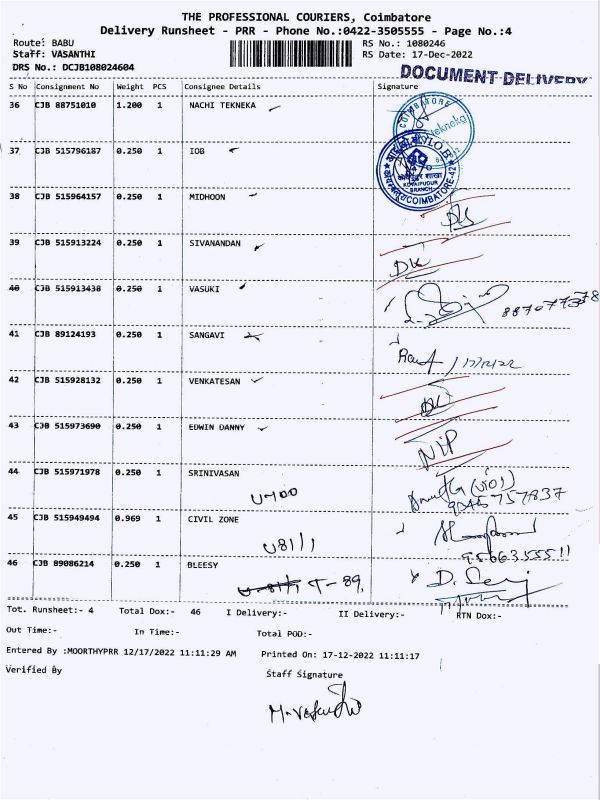 THE PROFESSIONAL COURIERS, Coimbatore
Delivery Runsheet - PRR - Phone No.:0422-3505555 - Page No.:4
Route: BABU RS No.: 1080246
Staff: VASANTHI RS Date: 17-Dec-2022
DRS No.: DCJB108024604
DOCUMENT DELIVERY
S No Consignment No Weight PCS Consignee Details Signature
36 CJB 88751010 1.200 1 NACHI TEKNEKA
COIMBATORE
37 CJB 515796187 0.250 1 IOB
KOVAIPUDUR
BRANCH
COIMBATORE-42
38 CJB 515964157 0.250 1 MIDHOON
39 CJB 515913224 0.250 1 SIVANANDAN
DK
40 CJB 515913438 0.250 1 VASUKI
41 CJB 89124193 0.250 1 SANGAVI
17/12/22
42 CJB 515928132 0.250 1 VENKATESAN
43 CJB 515973690 0.250 1 EDWIN DANNY
NIP
44 CJB 515971978 0.250 1 SRINIVASAN
45 CJB 515949494 0.969 1 CIVIL ZONE
U8111
9566355511
46 CJB 89086214 0.250 1 BLEESY
T-89,
Tot. Runsheet:- 4 Total Dox:- 46 I Delivery:- II Delivery:- RTN Dox:-
Out Time:- In Time:- Total POD:-
Entered By :MOORTHYPRR 12/17/2022 11:11:29 AM Printed On: 17-12-2022 11:11:17
Verified By Staff Signature